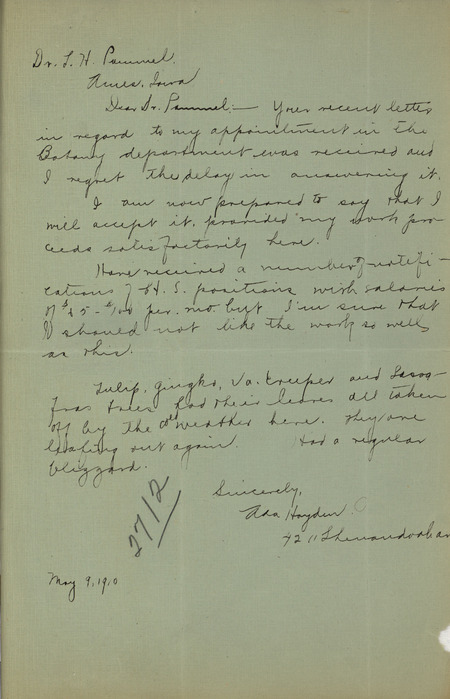 Dr. L. H. Pammel,
Ames, Iowa
Dear Dr. Pammel:— Your recent letter
in regard to my appointment in the
Botany department was received and
I regret the delay in answering it.
I am now prepared to say that I
will accept it, provided my work pro-
ceeds satisfactorily here.
Have received a number of notifi-
cations of H. S. positions with salaries
of - $100 per. mo. but I'm sure that
I should not like the work so well,
as this.
Tulip, gingko, Va. creeper and Sassa-
fras trees had their leaves all taken
off by the cold weather here. They are
leafing out again. Had a regular
blizzard.
Sincerely,
Ada Hayden
4211 Shenandoah av
2712
May 9, 1910